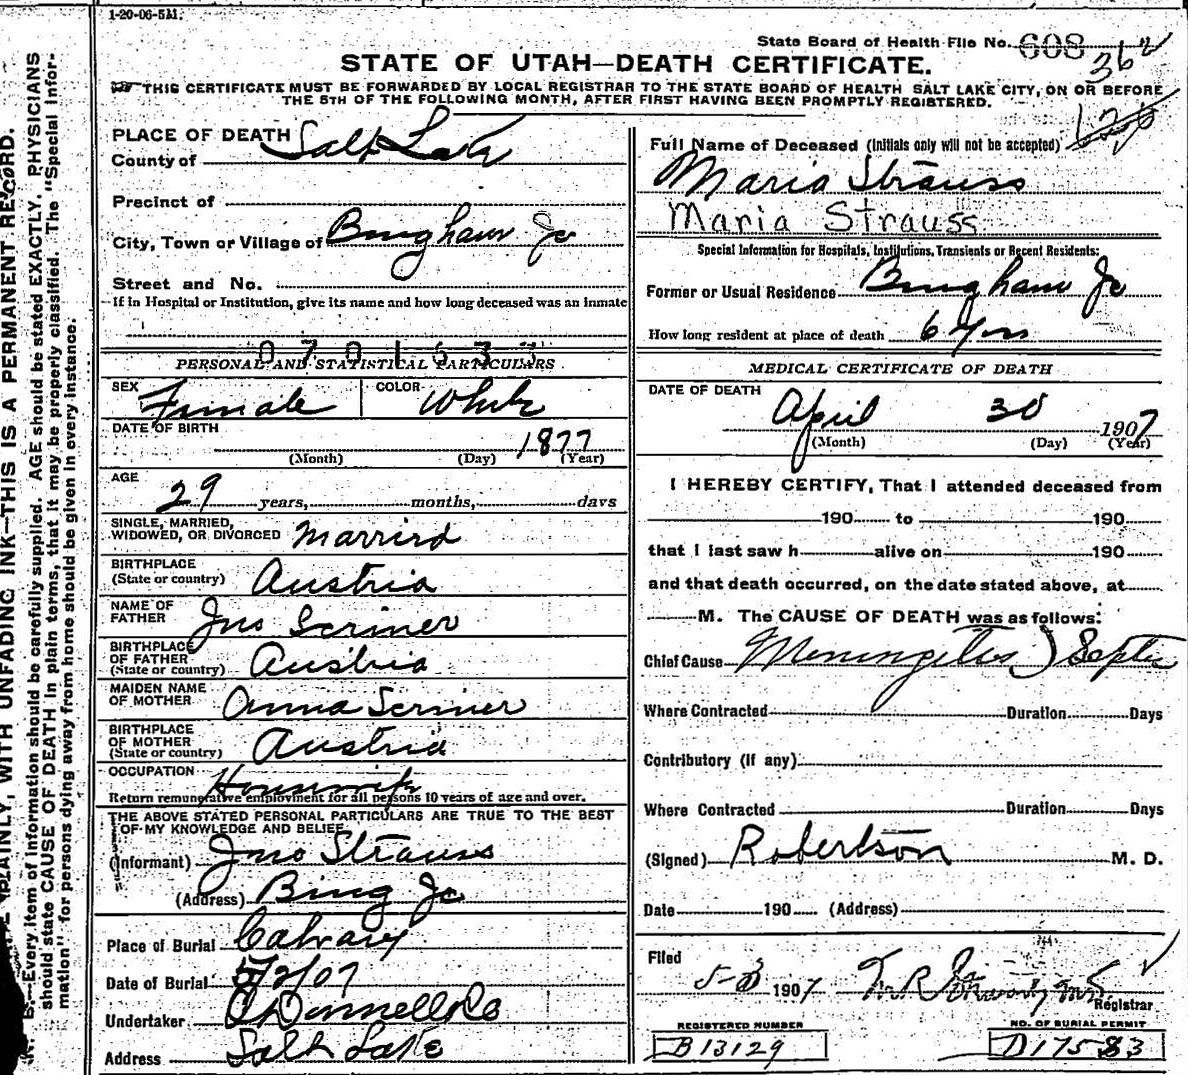 1-20-06-5M.
State Board of Health File No. 608
362
STATE OF UTAH—DEATH CERTIFICATE.
THIS CERTIFICATE MUST BE FORWARDED BY LOCAL REGISTRAR TO THE STATE BOARD OF HEALTH SALT LAKE CITY, ON OR BEFORE
THE 5TH OF THE FOLLOWING MONTH, AFTER FIRST HAVING BEEN PROMPTLY REGISTERED.
PLACE OF DEATH
County of Salt Lake
Precinct of
City, Town or Village of Bingham Jc
Street and No.
If in Hospital or Institution, give its name and how long deceased was an inmate
0701633
PERSONAL AND STATISTICAL PARTICULARS
SEX Female COLOR White
DATE OF BIRTH 1877
(Month) (Day) (Year)
AGE 29 years, months, days
SINGLE, MARRIED,
WIDOWED, OR DIVORCED Married
BIRTHPLACE
(State or country) Austria
NAME OF
FATHER Jno Scriner
BIRTHPLACE
OF FATHER
(State or country) Austria
MAIDEN NAME
OF MOTHER Anna Scriner
BIRTHPLACE
OF MOTHER
(State or country) Austria
OCCUPATION Housewife
Return remunerative employment for all persons 10 years of age and over.
THE ABOVE STATED PERSONAL PARTICULARS ARE TRUE TO THE BEST
OF MY KNOWLEDGE AND BELIEF
(Informant) Jno Strauss
(Address) Bing Jc
Place of Burial Calvary
Date of Burial 5/2/07
Undertaker O'Donnell & Co
Address Salt Lake
Full Name of Deceased (Initials only will not be accepted)
Maria Strauss
Maria Strauss
Special Information for Hospitals, Institutions, Transients or Recent Residents:
Former or Usual Residence Bingham Jc
How long resident at place of death 6 Yrs
MEDICAL CERTIFICATE OF DEATH
DATE OF DEATH
April 30 1907
(Month) (Day) (Year)
I HEREBY CERTIFY, That I attended deceased from
190 to 190
that I last saw h alive on 190
and that death occurred, on the date stated above, at
M. The CAUSE OF DEATH was as follows:
Chief Cause Meningetis) Septic
Where Contracted Duration Days
Contributory (if any)
Where Contracted Duration Days
(Signed) Robertson M. D.
Date 190 (Address)
Filed
5-3 1907
Registrar
REGISTERED NUMBER
B13129
NO. OF BURIAL PERMIT
D17583
PLAINLY, WITH UNFADING INK—THIS IS A PERMANENT RECORD.
B.—Every item of information should be carefully supplied. AGE should be stated EXACTLY. PHYSICIANS
should state CAUSE OF DEATH in plain terms, that it may be properly classified. The "Special Infor-
mation" for persons dying away from home should be given in every instance.